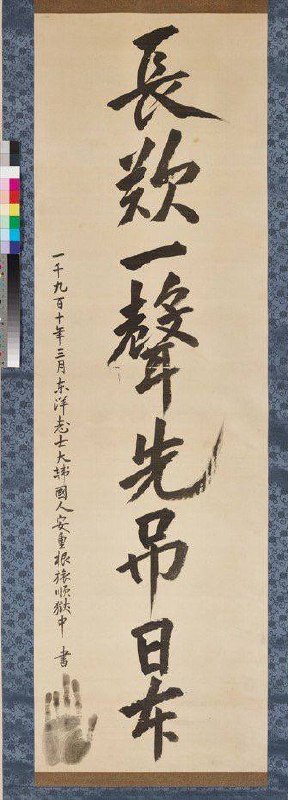 長歎一聲先吊日本
一千九百十年三月 東洋志士大韓國人安重根旅順獄中 書